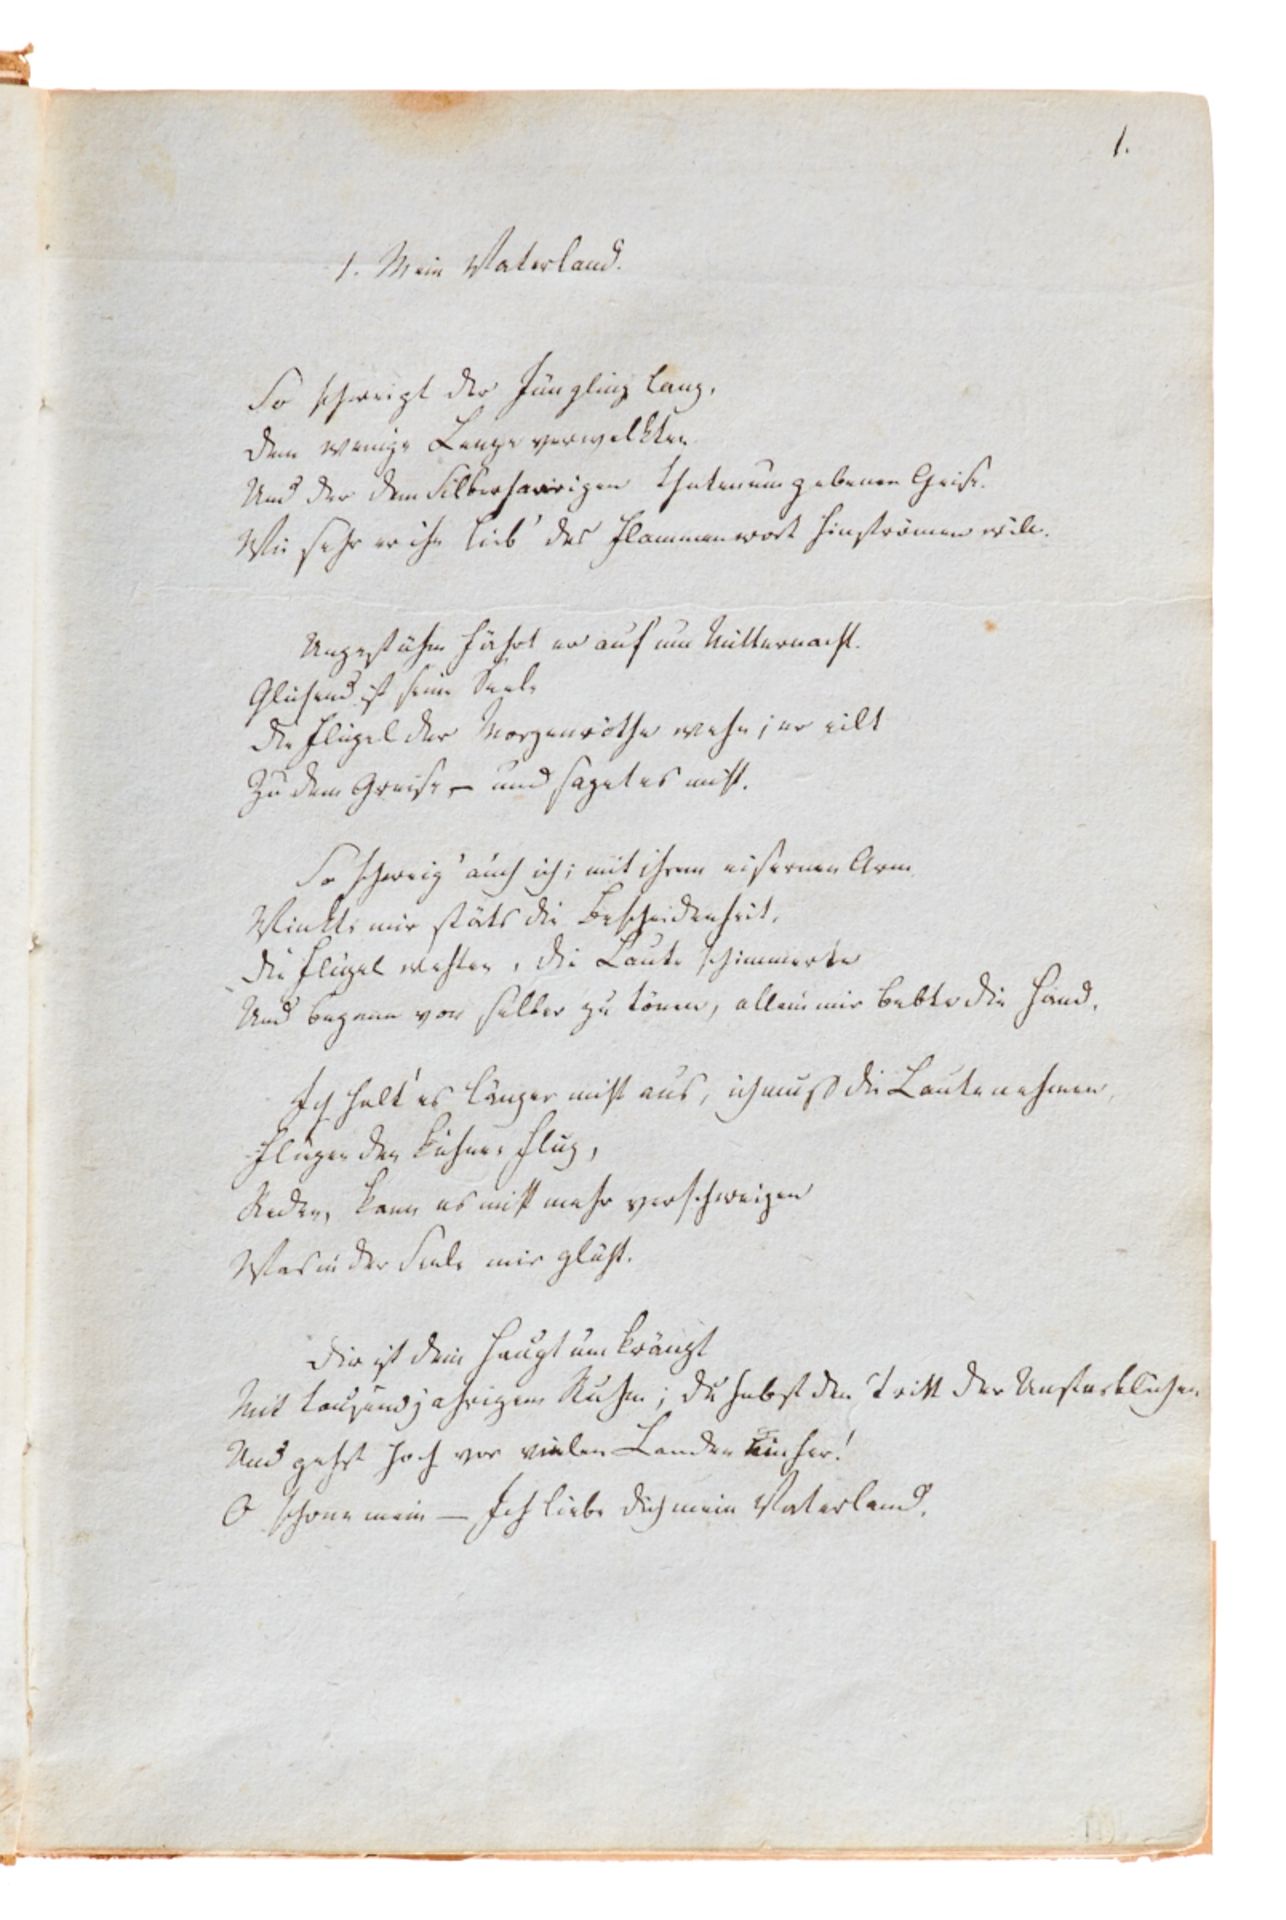 1.
1. Mein Vaterland.
So schweigt der Jüngling lang,
Dem wenige Lenze verwelkten
Und der dem Silberhaarigen thatenumgebenen Greise.
Wie sehr er ihn lieb' das Flammenwort hinströmen will.
Ungestühm fährt er auf um Mitternacht.
Glühend ist seine Seele
Die Flügel der Morgenröthe wehn; er eilt
Zu dem Greise – und saget es nicht.
So schweig' auch ich; mit ihrem eisernen Arm
Winkte mir stäts die Bescheidenheit,
Die Flügel wehten, die Laute schimmerte
Und begann von selber zu tönen, allein mir bebte die Hand.
Ich halt' es länger nicht aus, ich muß die Laute nehmen,
Fliegen den kühnen Flug,
Reden, kann es nicht mehr verschweigen
Was in der Seele mir glüht.
Dir ist dein Haupt umkränzt
Mit tausendjahrigem Ruhm; du hebst den Tritt der Unsterblichen
Und gehst hoch vor vielen Landen einher!
O schone mein — Ich liebe dich mein Vaterland.